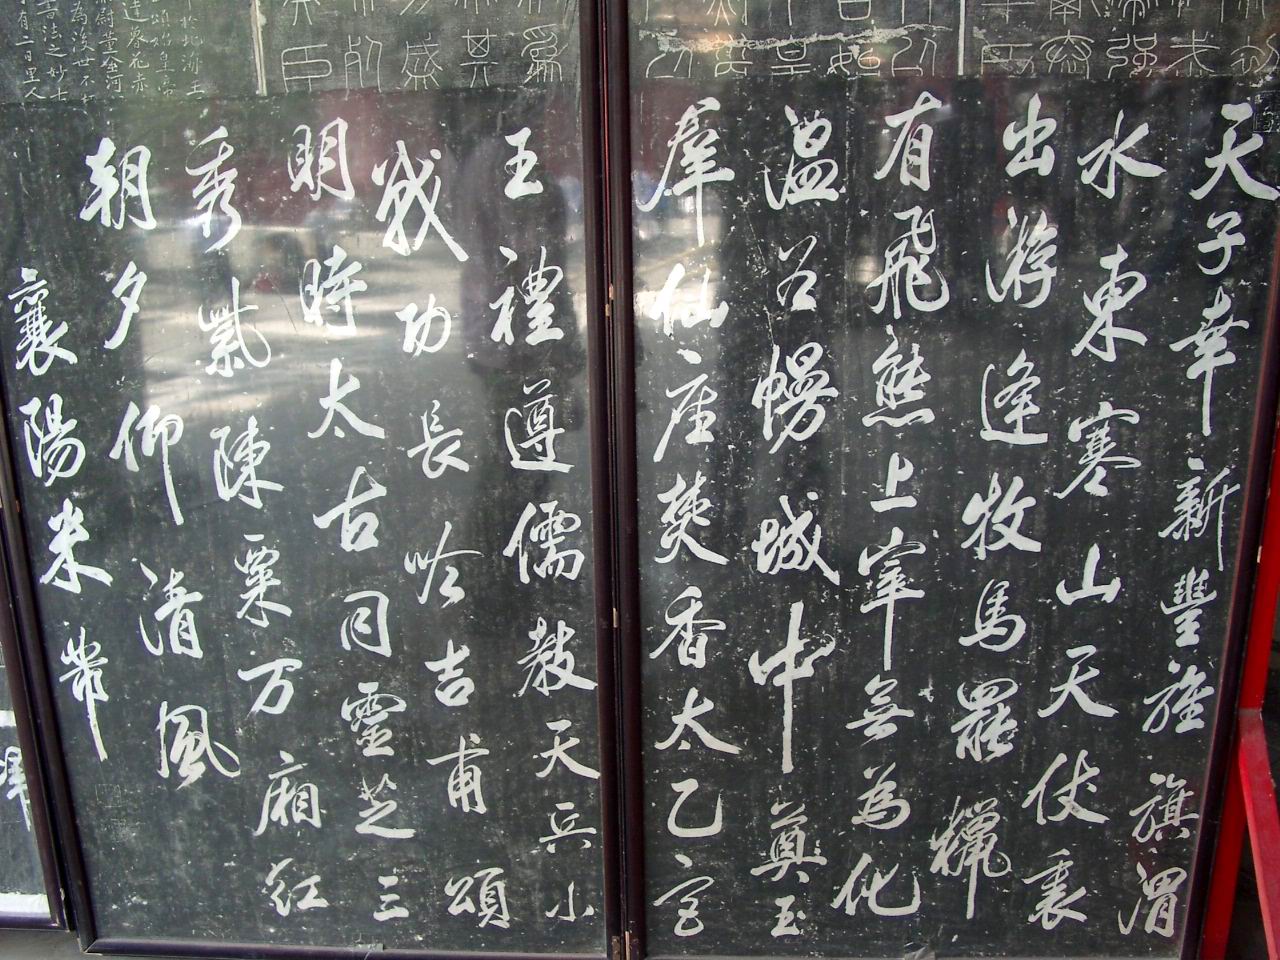 天子幸新豐旌旗渭
水東寒山天仗裏
出游逢牧馬罷獵
有飛熊上宰無為化
温谷幔城中奠玉
羣仙座焚香太乙宮
王禮遵儒教天兵小
戰功長吟吉甫頌
明時太古同靈芝三
秀紫陳粟万廂紅
朝夕仰清風
襄陽米芾